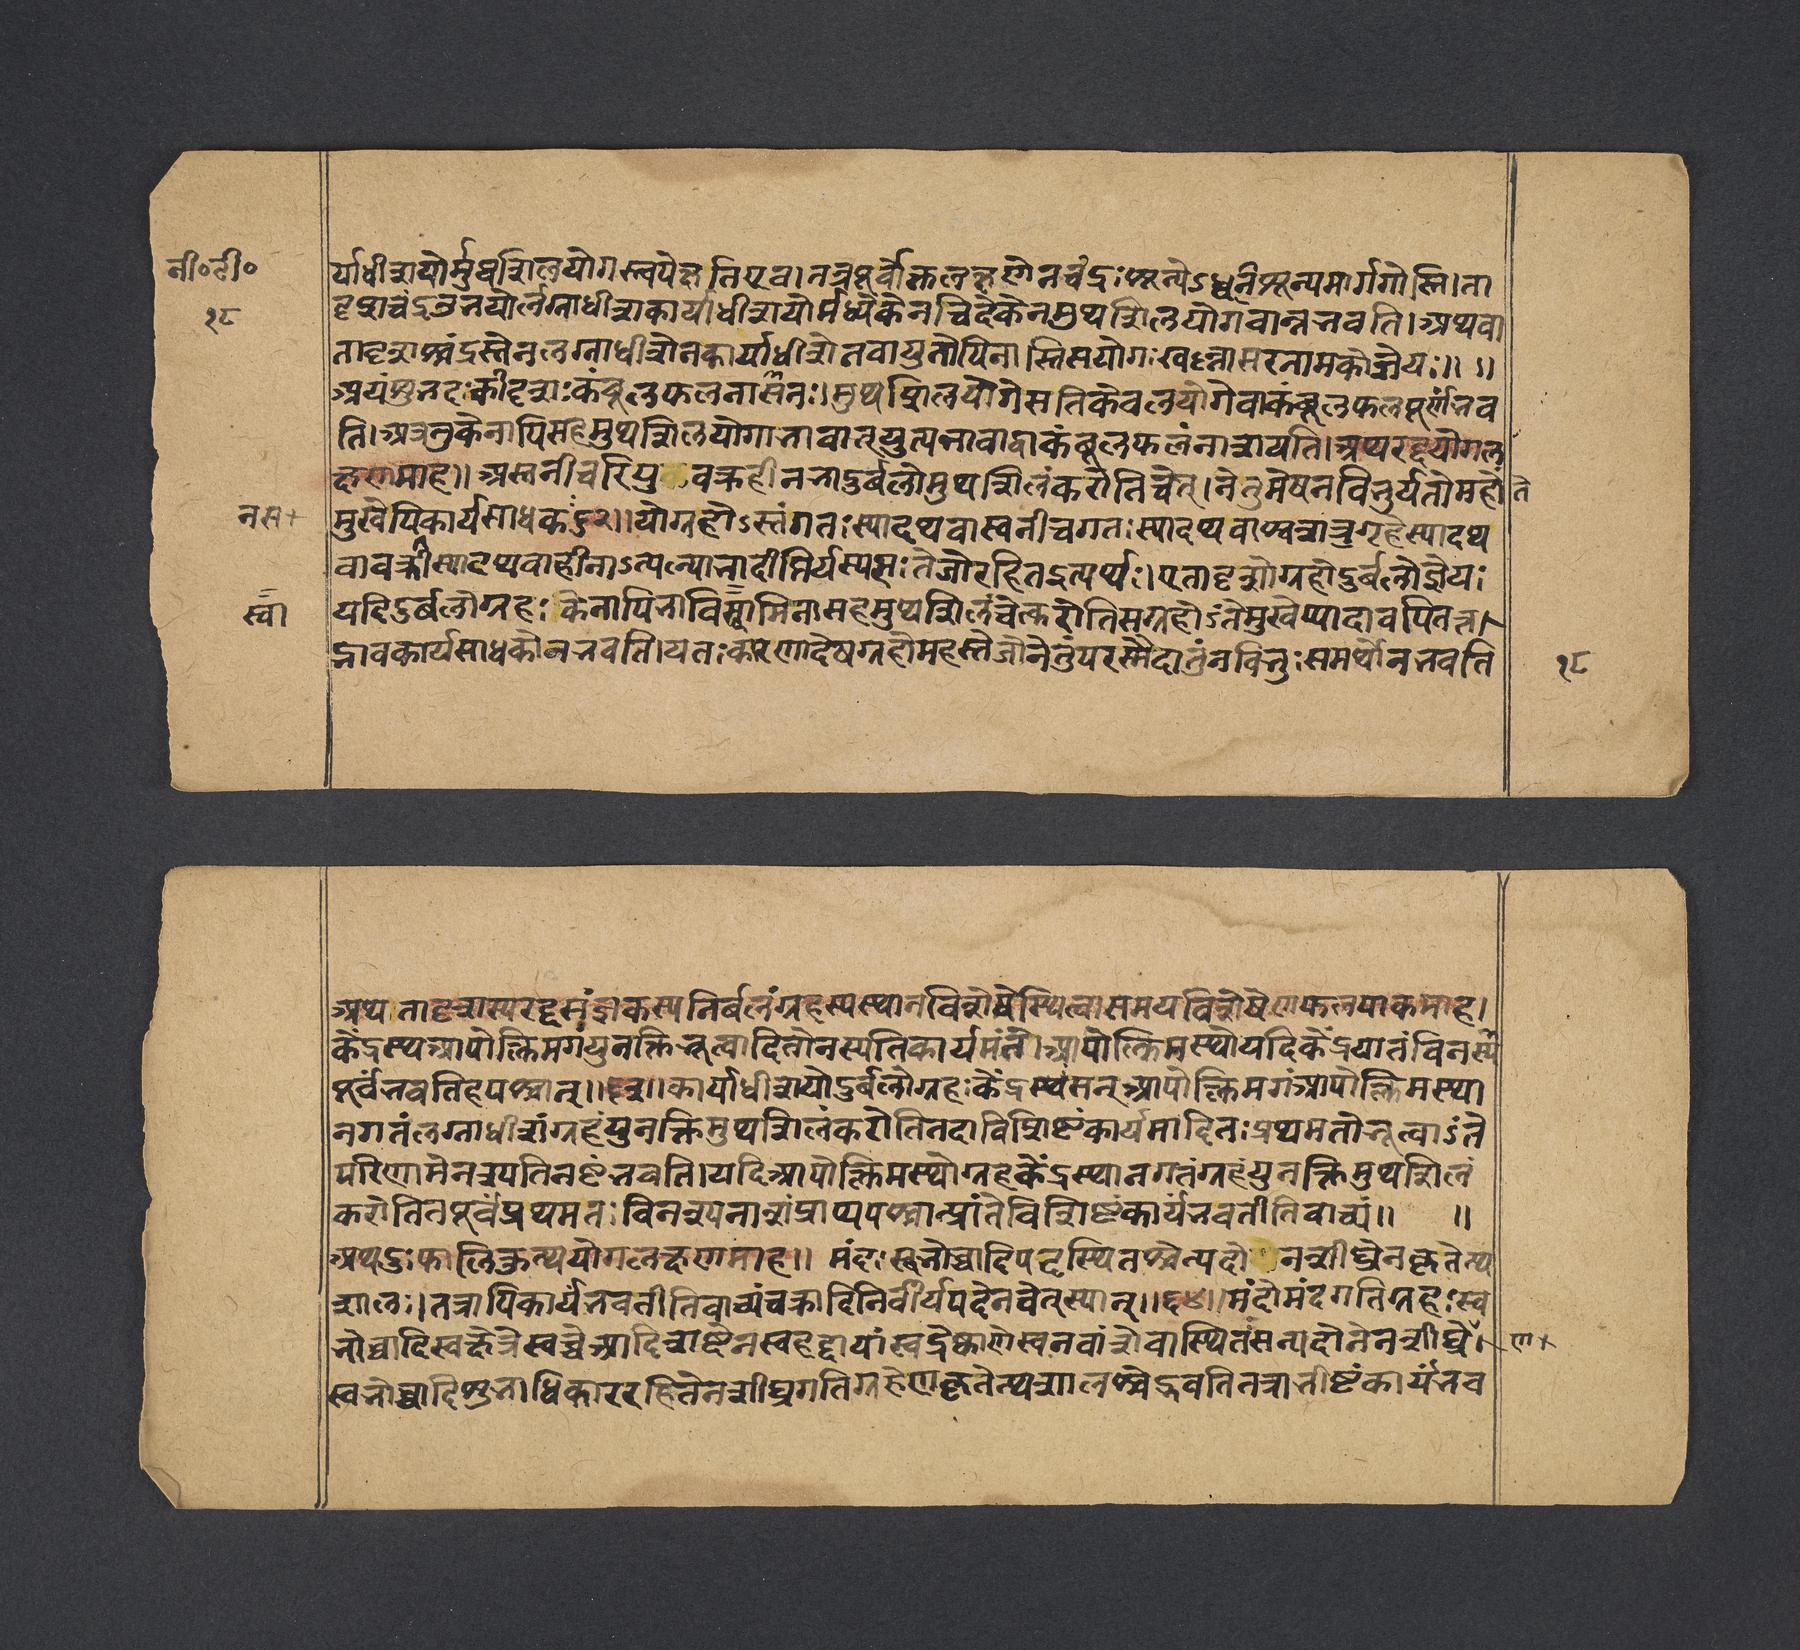 नी॰टी॰
१८
र्याधीशयोर्मुथशिलयोगस्त्वपेक्षतिएव। तत्रपूर्वोक्तलक्षणेनचंद्रःशून्येऽध्वनिशून्यमार्गगोस्ति। ता
दृशचंद्रउभयोर्लग्नाधीशकार्याधीशयोर्मध्येकेनचिदेकेनमुथशिलयोगवान्नभवति। अथवा
तादृशश्चंद्रस्तेनलग्नाधीशेनकार्याधीशेनवायुतोपिनास्तिसयोगःखल्लासरनामकोज्ञेयः॥ ॥
अयंशुभदःकीदृशःकंबूलफलनाशनः। मुथशिलयोगेसतिकेवलयोगेवाकंबूलफलपूर्णंभव
ति। अत्रतुकेनापिसहमुथशिलयोगाभावात्युत्यभावाद्वाकंबूलफलंनाशयति। अथरद्दयोगल
क्षणमाह॥ अस्तनीचरिपुवक्रहीनभादुर्बलोमुथशिलंकरोतिचेत्। नेतुमेषनविभुर्यतोमहोंते
नस+
मुखेपिकार्यसाधकः६२॥ योग्रहोऽस्तंगतःस्यादथवास्वनीचगतःस्यादथवास्वशत्रुगृहेस्यादथ
वावक्रीस्यादथवाहीनाऽत्यल्पाभादीप्तिर्यस्यसःतेजोरहितइत्यर्थः। एतादृशोग्रहोदुर्बलोज्ञेयः
स्वा
यदिदुर्बलोग्रहःकेनापिभाविस्वामिनासहमुथशिलंचेत्करोतिसग्रहोंऽतेमुखेप्यादावपितत्त
द्भावकार्यसाधकोनभवति। यतःकारणादेषग्रहोमहस्तेजोनेतुंपरस्मैदातुंनविभुःसमर्थोनभवति
१८
अथैतादृशस्यरद्दसंज्ञकस्यनिर्बलग्रहस्यस्थानविशेषेस्थित्वासमयविशेषेणफलपाकमाह।
केंद्रस्थआपोक्लिमगंयुनक्तिभूत्वादितोनश्यतिकार्यमंते। आपोक्लिमस्थोयदिकेंद्रयातंविनश्य
पूर्वंभवतिहपश्चात्॥६३॥ कार्याधीशयोदुर्बलोग्रहःकेंद्रस्थःसन्आपोक्लिमगंआपोक्लिमस्था
नगतंलग्नाधीशंग्रहंयुनक्तिमुथशिलंकरोतितदाविशिष्टंकार्यमादितःप्रथमतोभूत्वाऽंते
परिणामेनश्यतिनष्टंभवति। यदिआपोक्लिमस्थोग्रहकेंद्रस्थानगतंग्रहंयुनक्तिमुथशिलं
करोतितपूर्वंप्रथमतःविनश्यनाशंप्राप्यपश्चात्प्रांतेविशिष्टंकार्यंभवतीतिवाच्यं॥ ॥
अथदुःफालिकुत्थयोगलक्षणमाह॥ मंदःस्वभोच्चादिपदेस्थितश्चेत्पदोननशीघ्रेनकृतेत्थ
शालः। तत्रापिकार्यंभवतीतिवाच्यंवक्रादिनिर्वीर्यपदेनचेत्स्यात्॥६४॥ मंदोमंदगतिग्रहःस्व
भोच्चादिस्वक्षेत्रेस्वोच्चेआदिशब्देनस्वहद्दायांस्वद्रेष्काणेस्वनवांशेवास्थितःसन्पदोनेनशीघ्रे
ण×
स्वभोच्चादिशुभाधिकाररहितेनशीघ्रगतिग्रहेणकृतेत्थशालश्चेद्भवतितत्राभीष्टंकार्यंभव